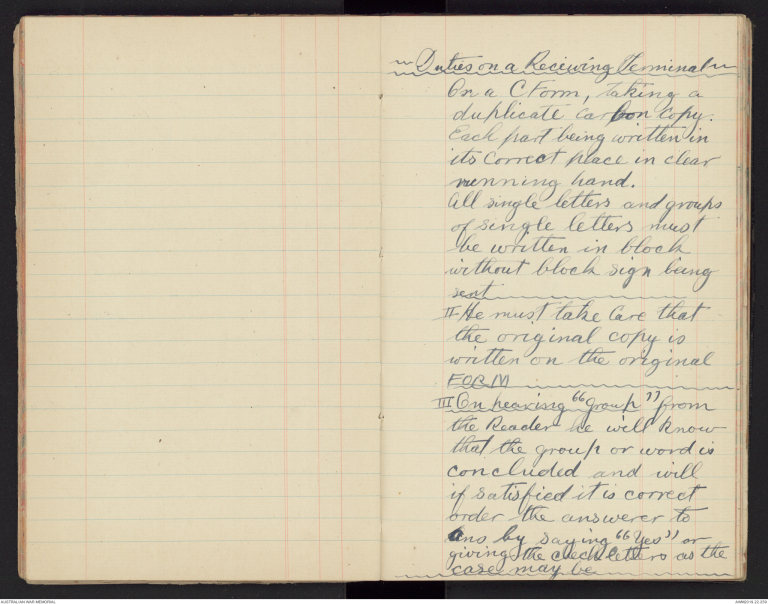 Duties on a Receiving Terminal
On a C Form, taking a
duplicate carbon copy.
Each part being written in
its correct place in clear
running hand.
All single letters and groups
of single letters must
be written in block
without block sign being
sent
II He must take Care that
the original copy is
written on the original
FORM
III On hearing "group" from
the Reader he will know
that the group or word is
concluded and will
if satisfied it is correct
order the answerer to
Ans by saying "Yes" or
giving the check letters as the
case may be
AUSTRALIAN WAR MEMORIAL